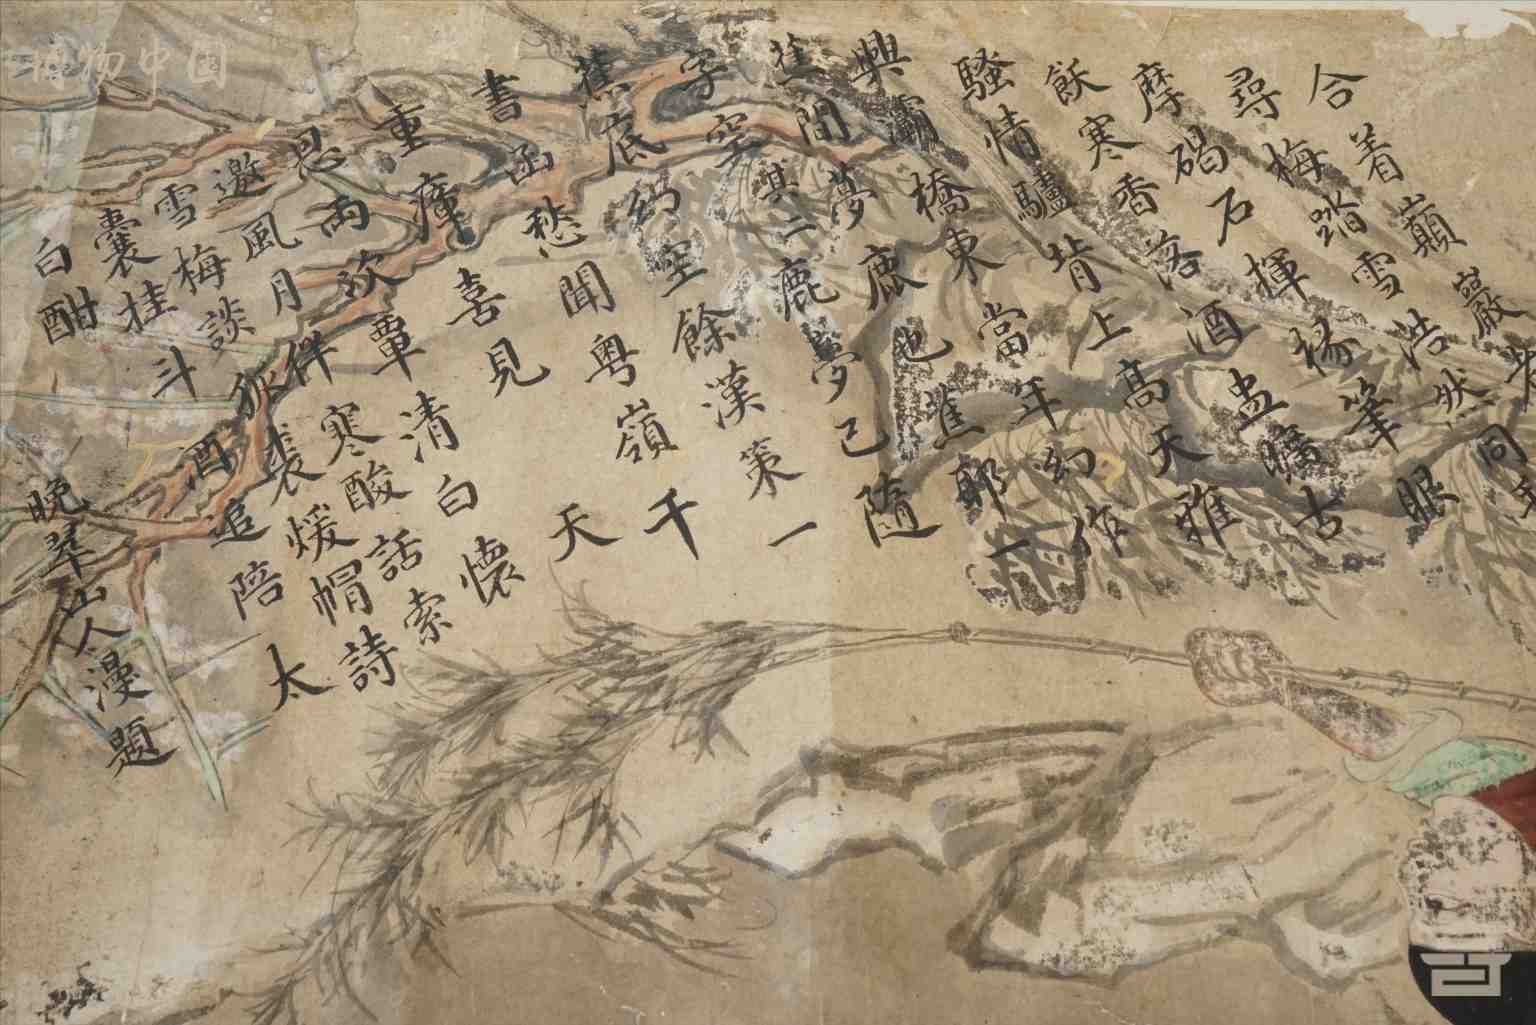 合着巔巖
尋梅踏雪浩然同身
摩碣石揮椽筆眼
飫寒香落酒盅曠古
騷情驢背上高天雅
興灞橋東當年幻作
蕉間夢鹿也蕉鄭一
字空
其二
鹿夢已隨
蕉底幻塵餘漢策一
書函愁聞粵嶺千
重瘴喜見天
恩兩欢覃清白懷
邀風月伴寒酸話索
雪梅談狐裘煖帽詩
囊桂斗酒追陪太
白酣
晚翠山人漫題
博物中国